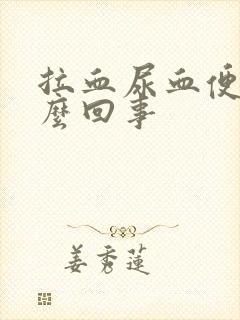 拉血尿血便
麼回事
姜秀蓮